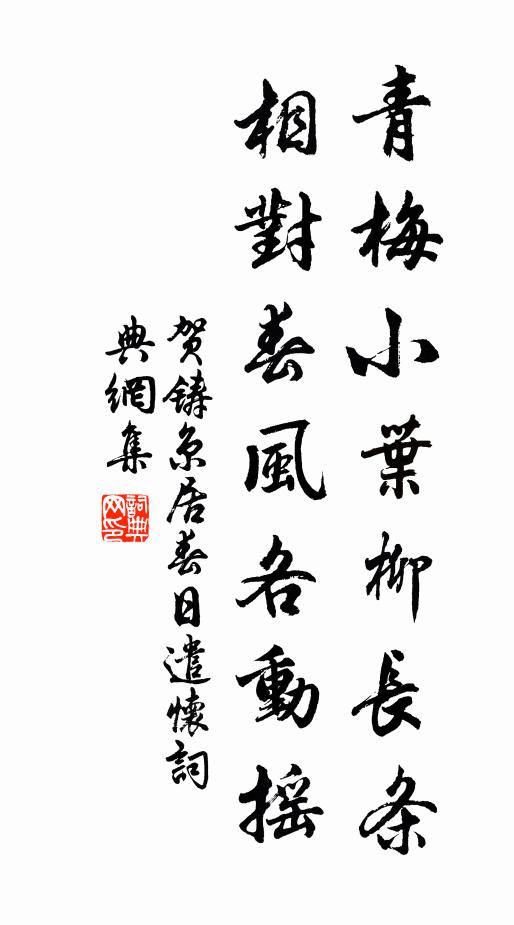 青梅小葉柳長条
相對春風各動摇
贺鑄京居春日遣懷詞
典網集
詞典网印